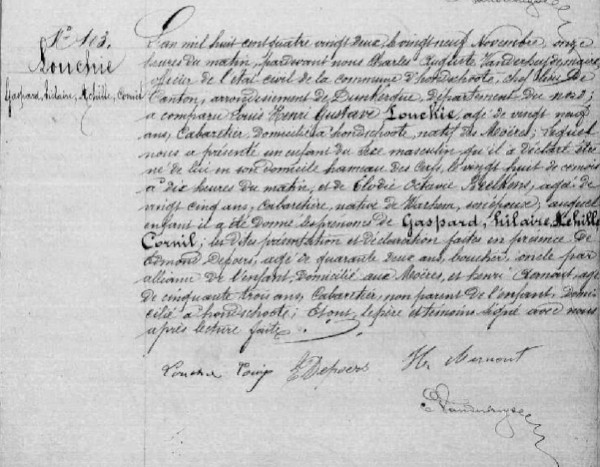 N° 103.
Louchie
Gaspard, hilaire, Achille, Cornil
L'an mil huit cent quatre vingt deux, le vingt neuf Novembre, onze
heures du matin, pardevant nous Charles Auguste
officier de l'état civil de la commune d'hondschoote, chef lieu de
Canton, arrondissement de Dunkerque, département du nord;
a comparu Louis Henri Gustave Louchie, agé de vingt neuf
ans, Cabaretier, domicilié à hondschoote, natif des Moëres; lequel
nous a présenté un enfant du sexe masculin qu'il a déclaré être
né de lui en son domicile hameau des Cerfs, le vingt huit de ce mois
à dix heures du matin, et de Elodie Octavie agée de
vingt cinq ans, Cabaretière, native de Warhem, son épouse, auquel
enfant il a été donné les prénoms de Gaspard, hilaire, Achille
Cornil; les dites présentation et déclaration faites en présence de
Edmond Depoers, agé de quarante deux ans, boucher, oncle par
alliance de l'enfant, domicilié aux Moëres, et henri agé
de cinquante trois ans, Cabaretier, non parent de l'enfant, domi
cilié à hondschoote; Et ont, le père et témoins signé avec nous
après lecture faite.
Louchie Louis E Depoers